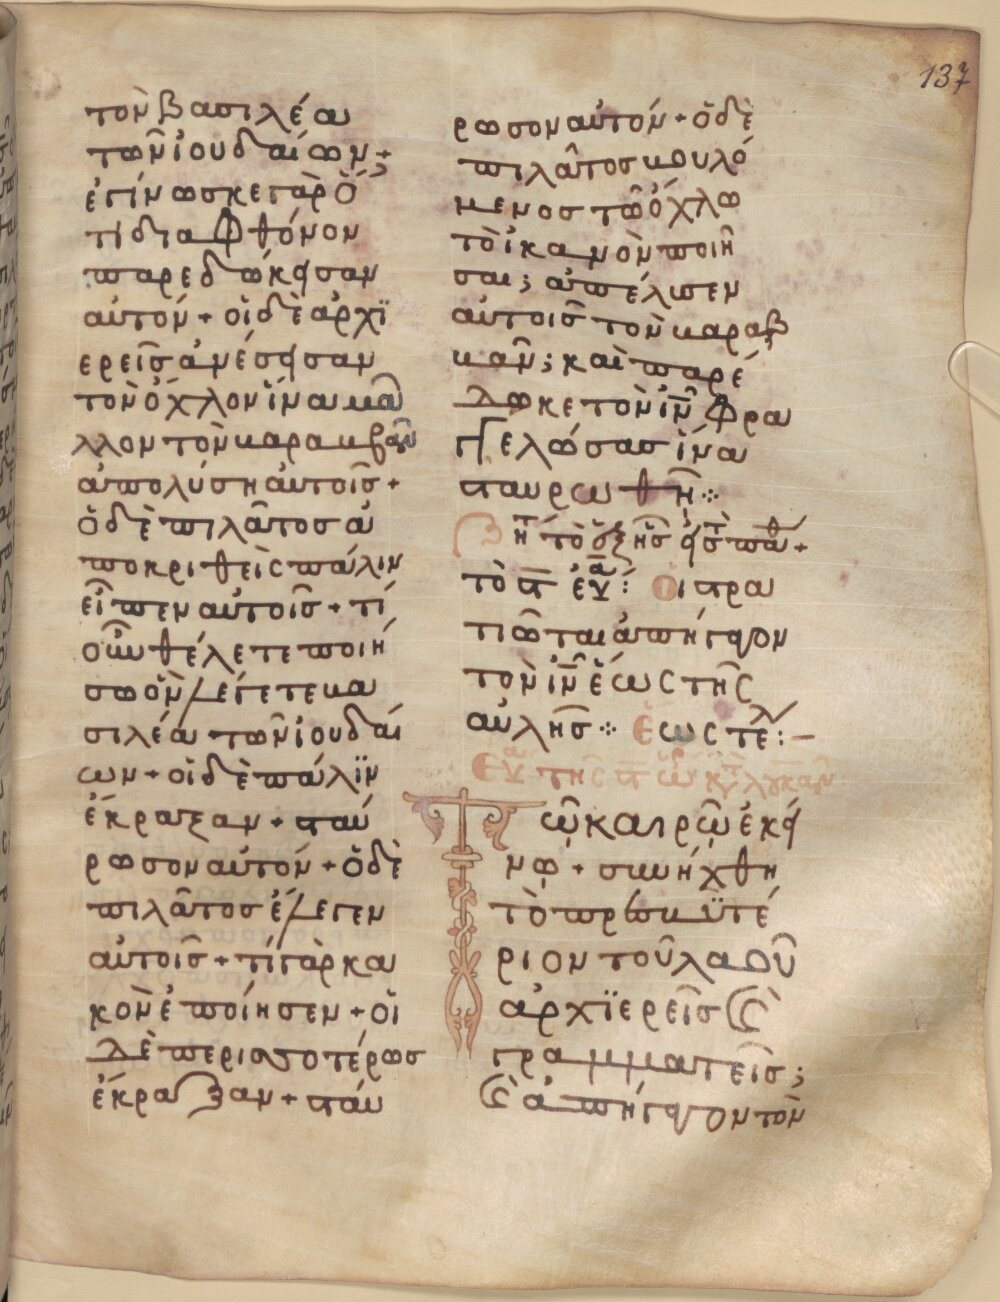 137
τὸν βασιλέα
τῶν ἰουδαίων;
ἐγίνωσκε γὰρ ὅ
τι διὰ φθόνον
παρεδώκεσαν
αὐτόν + οἱ δὲ ἀρχϊ
ερεῖς ἀνέσεσαν
τὸν ὄχλον ἵνα μᾶ
λλον τὸν βαραββᾶν
ἀπολύση αὐτοῖς +
ὁ δὲ πιλᾶτος ἀ
ποκριθεὶς πάλιν
εἶπεν αὐτοῖς + τί
οὖν θέλετε ποιή
σω ὃν λέγετε βα
σιλέα τῶν ἰουδαί
ων + οἱ δὲ πάλϊν
ἔκραξαν + σταύ
ρωσον αὐτόν + ὁ δὲ
πιλᾶτος ἔλεγεν
αὐτοῖς + τί γὰρ κα
κὸν ἐποίησεν + οἱ
δὲ περισσοτέρως
ἔκραζαν + σταύ
ρωσον αὐτόν + ὁ δὲ
πιλᾶτος βουλό
μενος τῶ ὄχλω
τὸ ἱκανὸν ποιῆ
σαι; ἀπέλυσεν
αὐτοῖς τὸν βαραβ
βᾶν; καὶ παρέ
δωκε τὸν ἰν φρα
γελώσας ἵνα
σταυρωθῆ ⁘
τὸ α εὐα: Οἱ στρα
τιῶται ἀπήγαγον
τὸν ἰν ἔως τῆς
αὐλῆς ⁘ Ἕως τέλ:–
Τῶ καιρῶ ἐκεί
νω + συνήχθη
τὸ πρεσβϋτέ
ριον τοῦ λαοῦ
ἀρχϊερεῖς καὶ
γραμματεῖς;
καὶ ἀπήγαγον τὸν